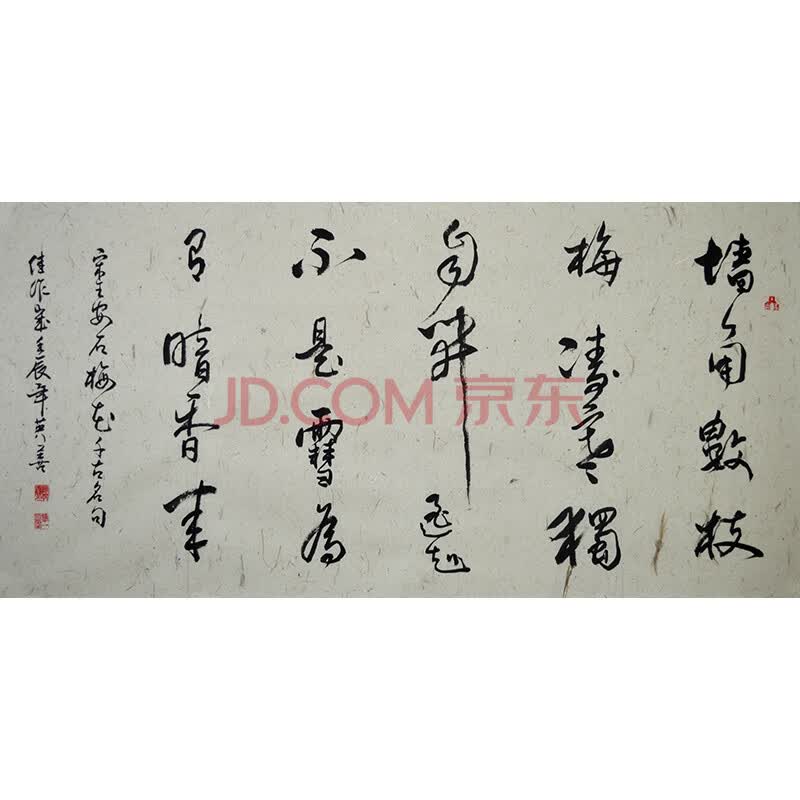 墙角數枝
梅凌寒獨
自開遥知
不是雪為
有暗香来
宋王安石梅花千古名句
佳作歲壬辰年英善
JD.COM 京东